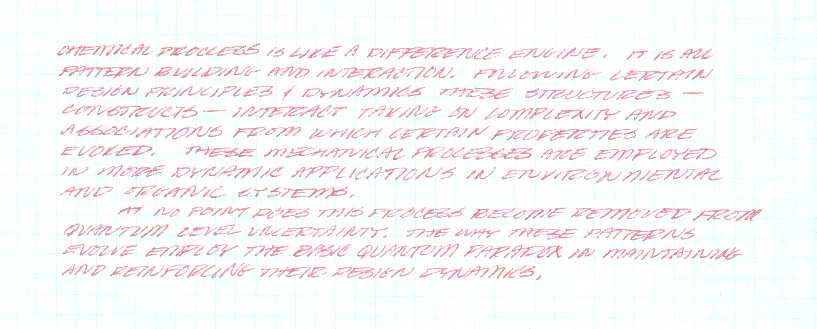 CHEMICAL PROCESS IS LIKE A DIFFERENCE ENGINE. IT IS ALL
PATTERN BUILDING AND INTERACTION. FOLLOWING CERTAIN
DESIGN PRINCIPLES & DYNAMICS THESE STRUCTURES —
CONSTRUCTS — INTERACT TAKING ON COMPLEXITY AND
ASSOCIATIONS FROM WHICH CERTAIN PROPERTIES ARE
EVOKED. THESE MECHANICAL PROCESSES ARE EMPLOYED
IN MORE DYNAMIC APPLICATIONS IN ENVIRONMENTAL
AND ORGANIC SYSTEMS.
AT NO POINT DOES THIS PROCESS BECOME REMOVED FROM
QUANTUM LEVEL UNCERTAINTY. THE WAY THESE PATTERNS
EVOLVE EMPLOY THE BASIC QUANTUM PARADOX IN MAINTAINING
AND REINFORCING THEIR DESIGN DYNAMICS.